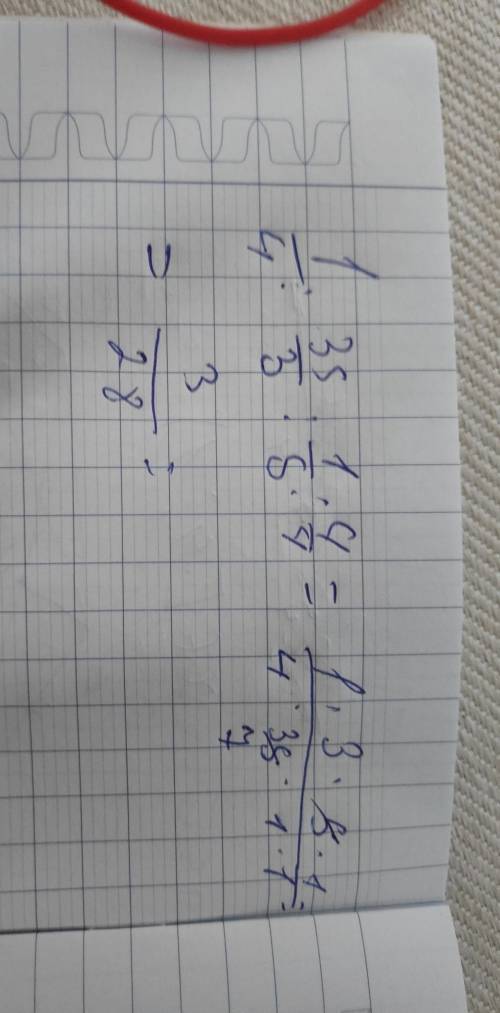 1/4 : 35/3 : 1/5 · 4/4 = (1 · 3 · 5 · 1)/(4 · 35 · 1 · 1) =
7
= 3/28 =